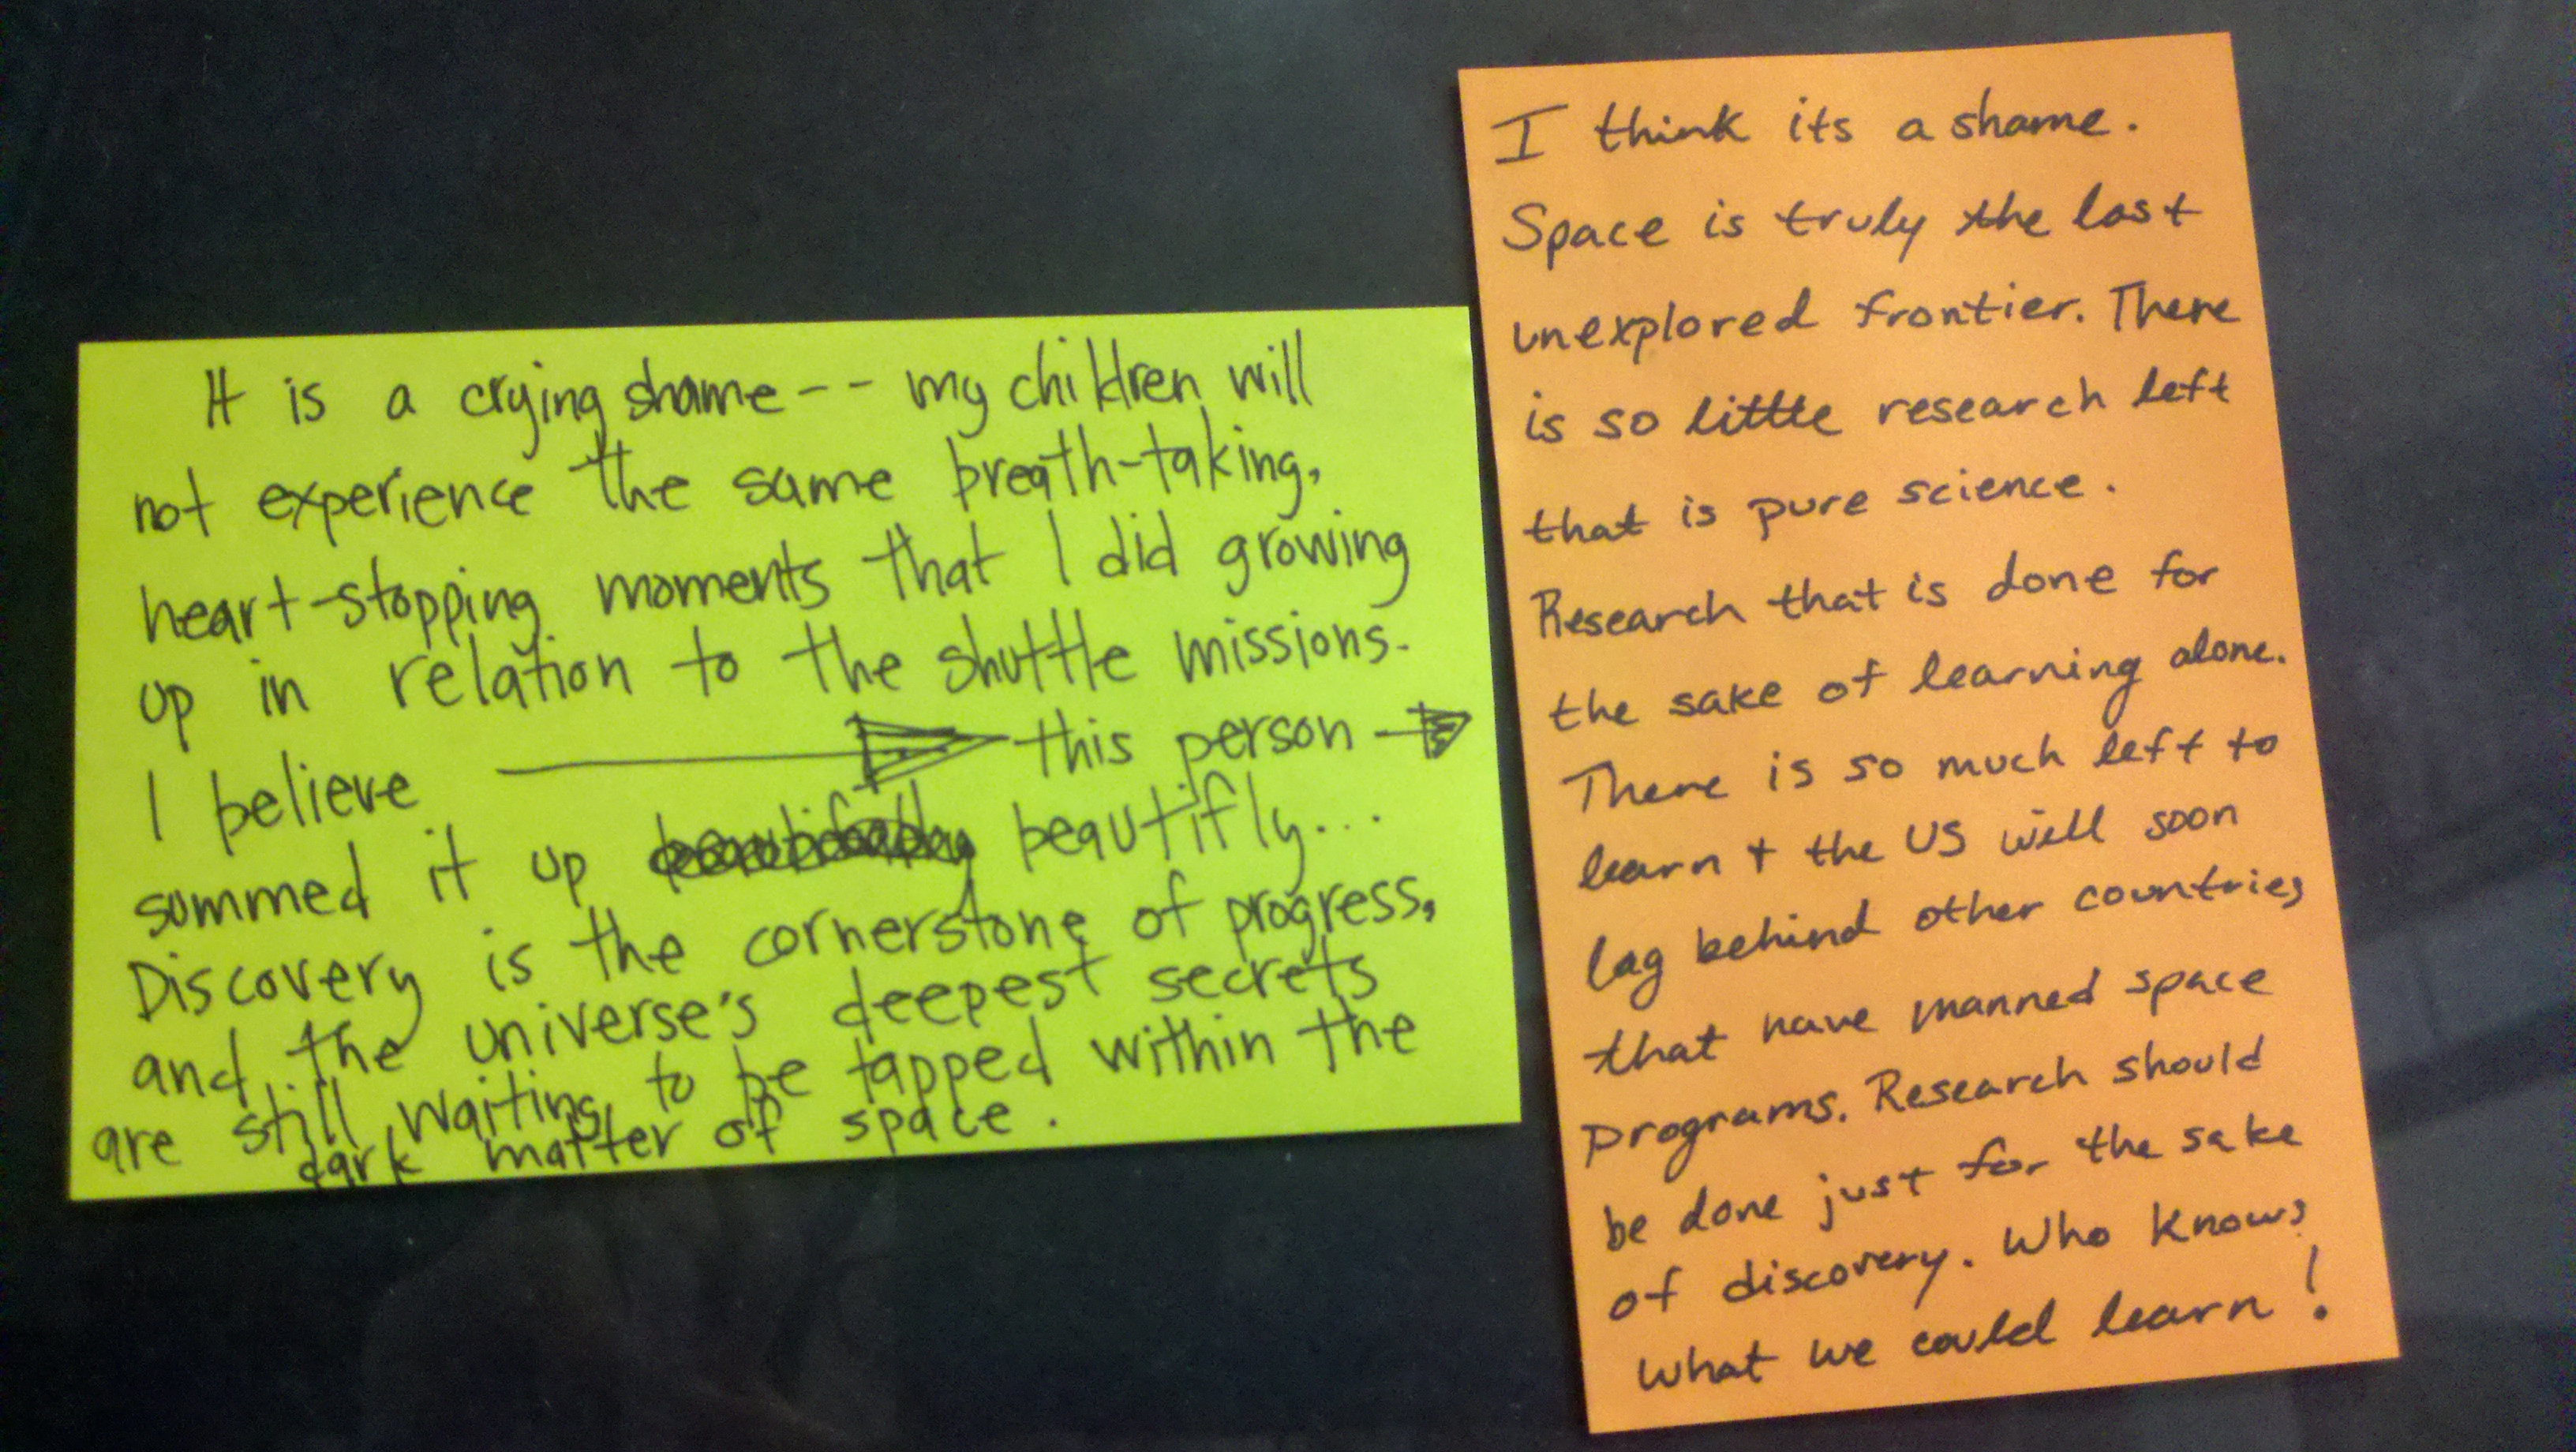 It is a crying shame -- my children will
not experience the same breath-taking,
heart-stopping moments that I did growing
up in relation to the shuttle missions.
I believe → this person →
summed it up beautifly...
Discovery is the cornerstone of progress,
and the universe's deepest secrets
are still waiting to be tapped within the
dark matter of space.
I think its a shame.
Space is truly the last
unexplored frontier. There
is so little research left
that is pure science.
Research that is done for
the sake of learning alone.
There is so much left to
learn + the US will soon
lag behind other countries
that have manned space
programs. Research should
be done just for the sake
of discovery. Who knows
what we could learn!